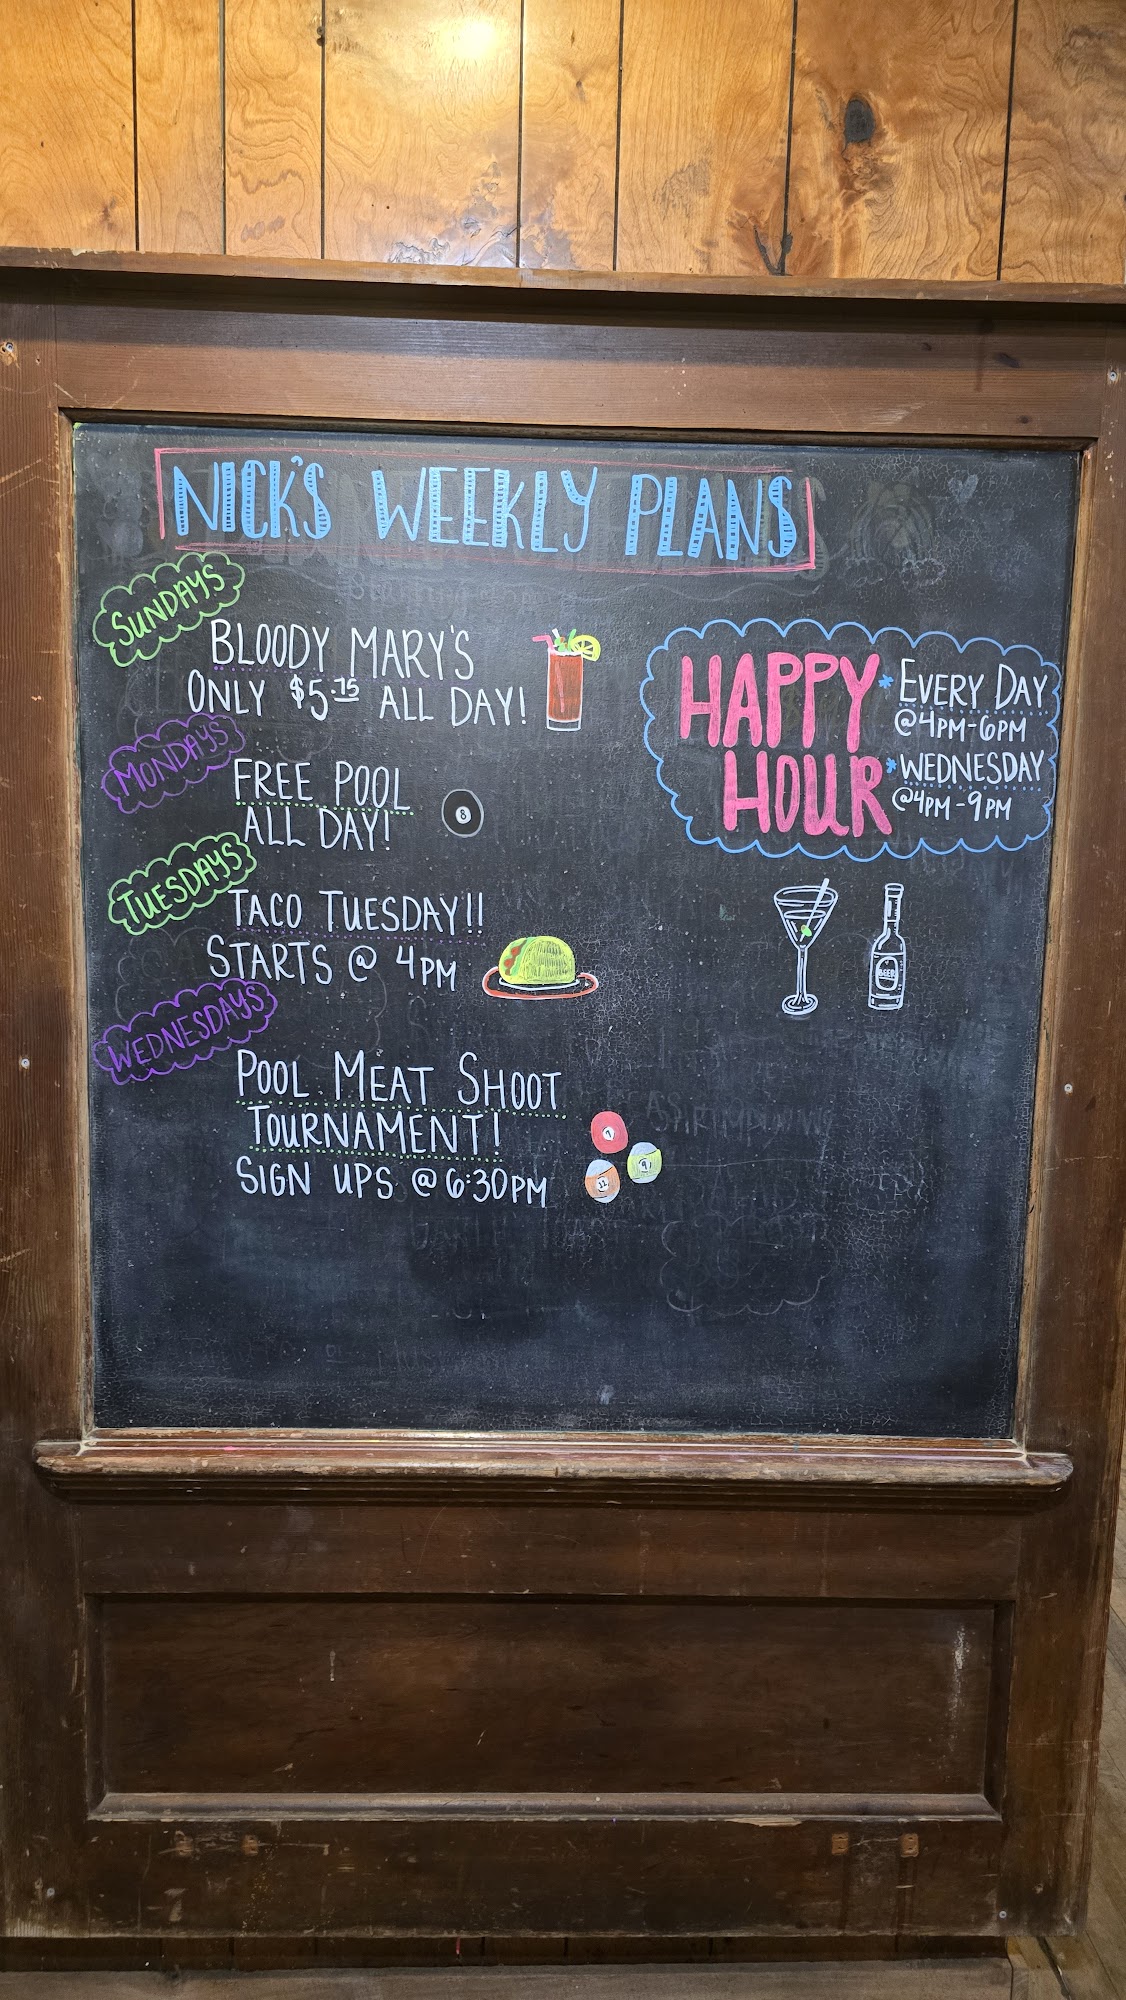 NICK'S WEEKLY PLANS
SUNDAYS
BLOODY MARY'S
ONLY $5.75 ALL DAY!
MONDAYS
FREE POOL
ALL DAY!
8
TUESDAYS
TACO TUESDAY!!
STARTS @ 4PM
WEDNESDAYS
POOL MEAT SHOOT
TOURNAMENT!
SIGN UPS @ 6:30PM
7
9
11
HAPPY
HOUR
* EVERY DAY
@4PM-6PM
* WEDNESDAY
@4PM-9PM
BEER